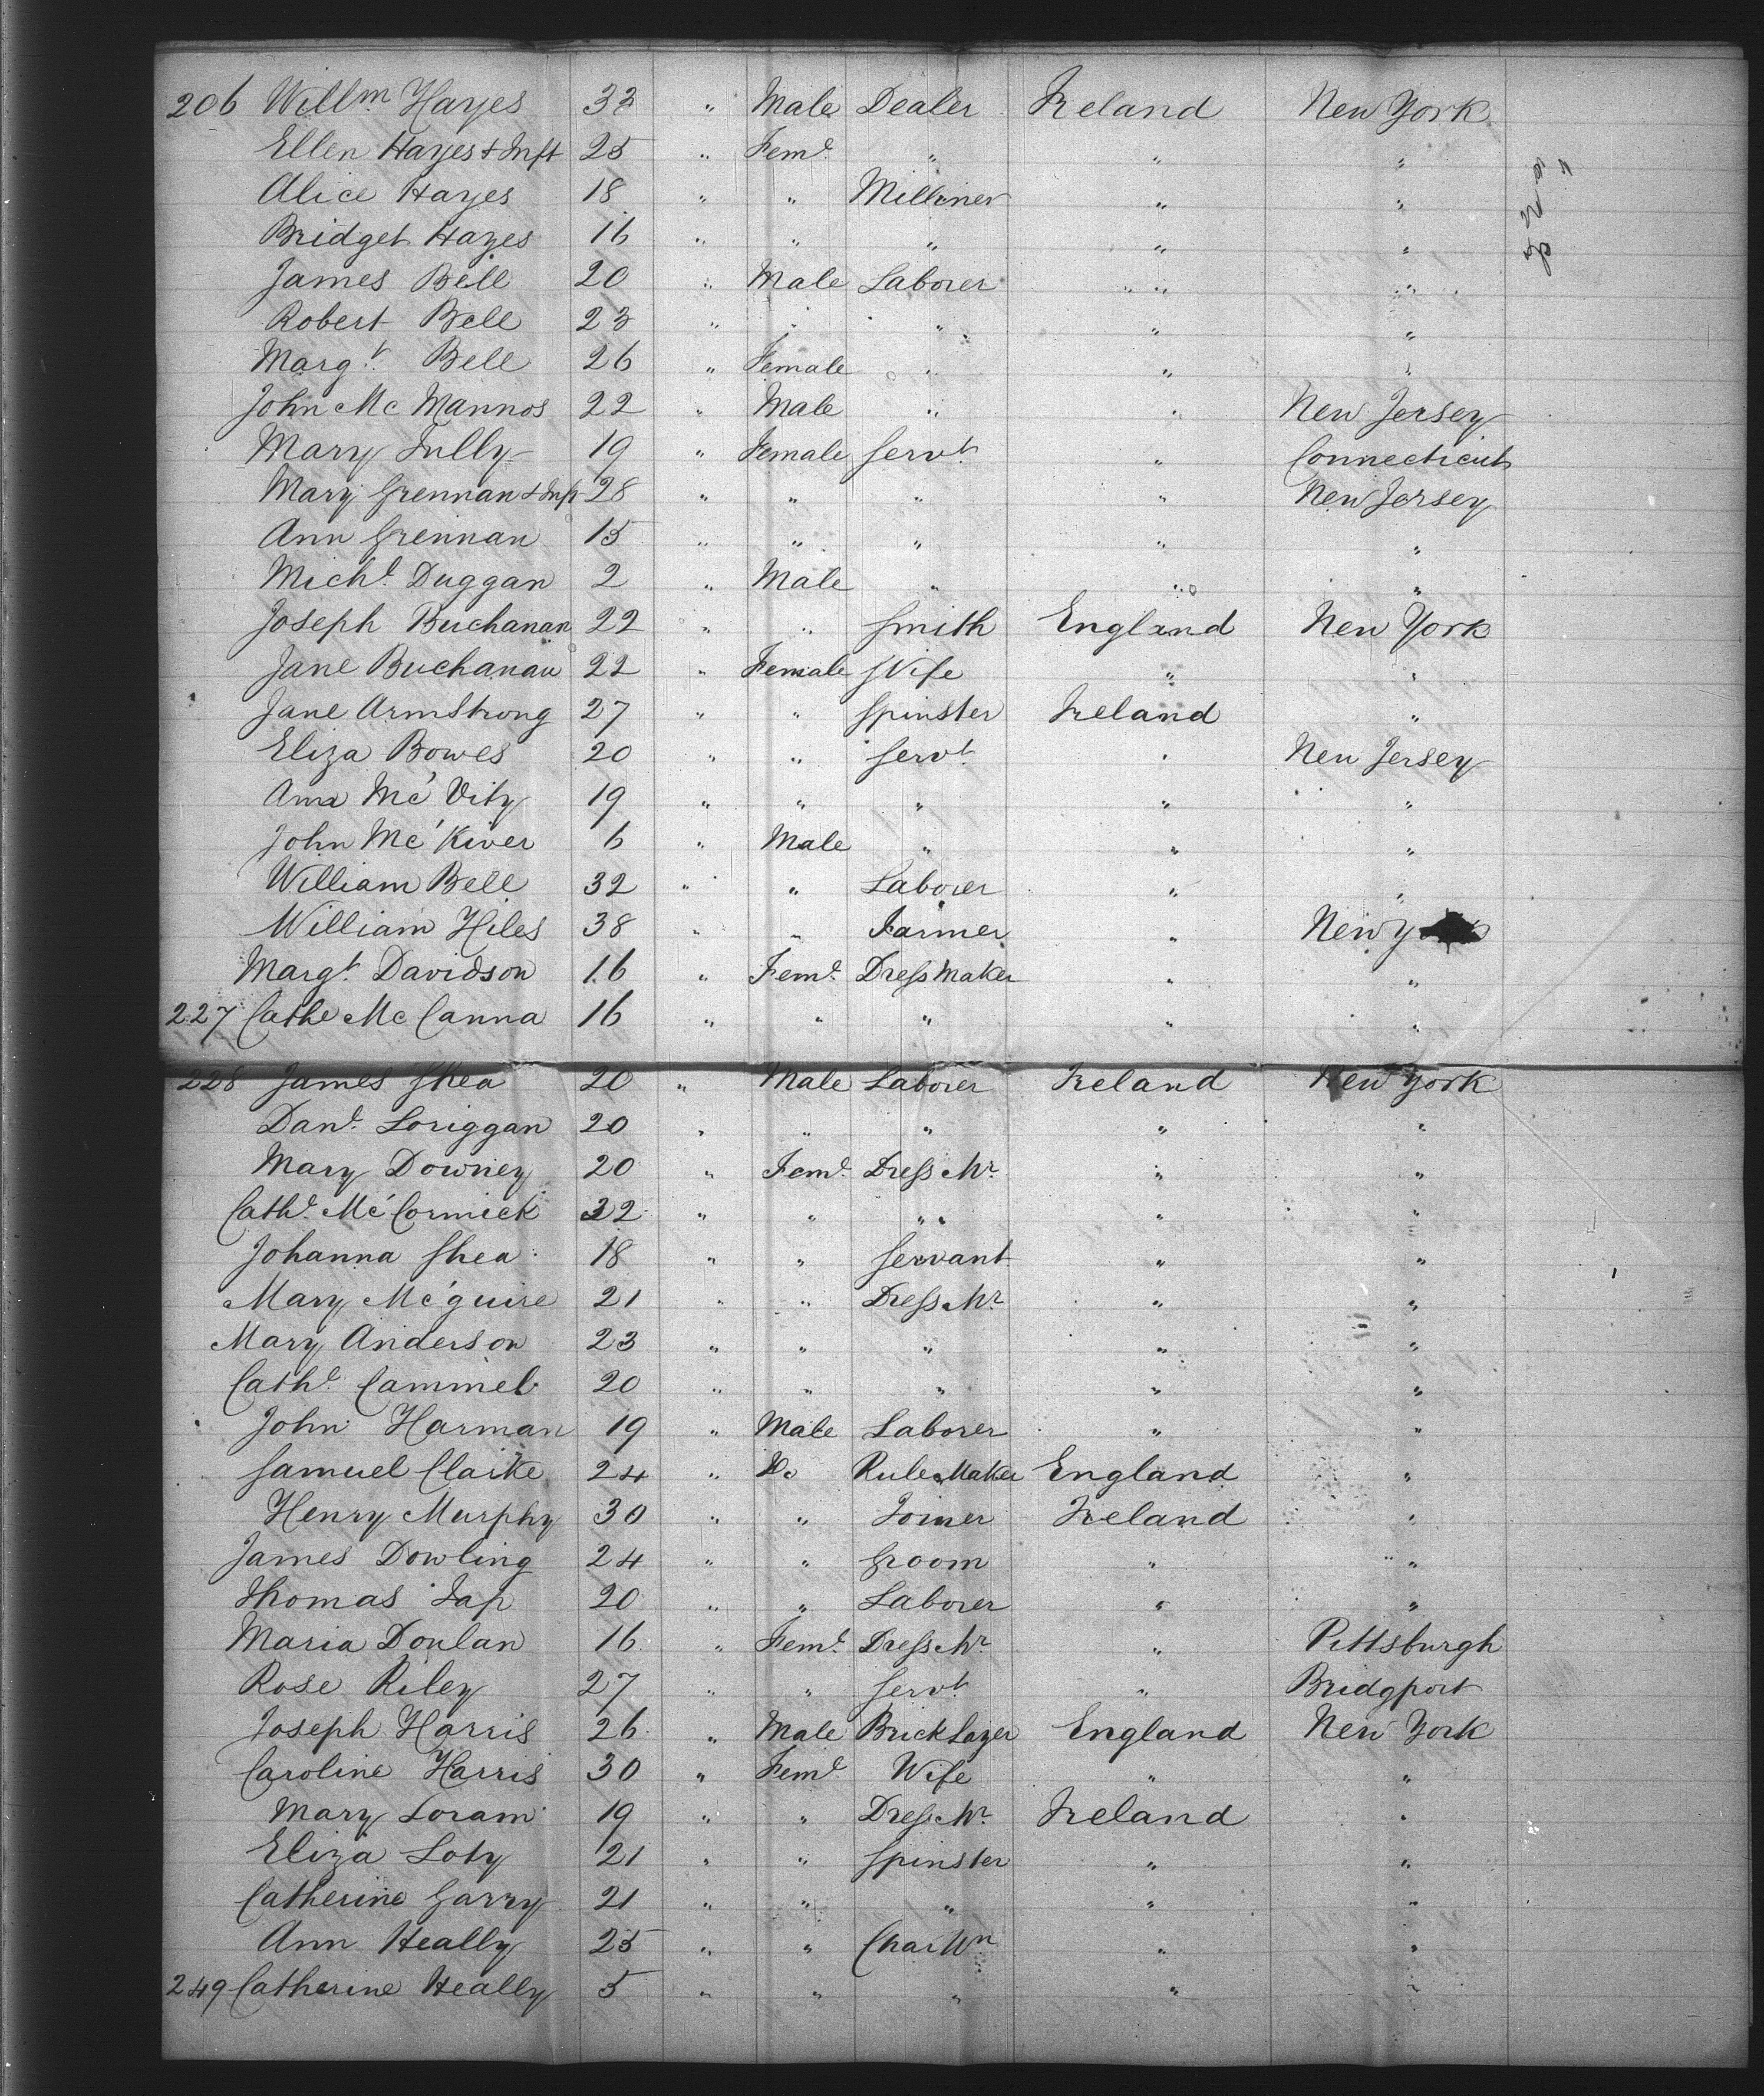 206 Will.m Hayes 33 " Male Dealer Ireland New York
Ellen Hayes & Inft 25 " Feml. " " "
Alice Hayes 18 " " Milliner " "
Bridget Hayes 16 " " " " "
James Bell 20 " Male Laborer " "
Robert Bell 23 " " " " "
Margt. Bell 26 " Female " " "
John Mc Mannos 22 " Male " " New Jersey
Mary Tully 19 " Female Servt. " Connecticut
Mary Grennan & Inft 28 " " " " New Jersey
Ann Grennan 15 " " " " "
Michl. Duggan 2 " Male " " "
Joseph Buchanan 22 " " Smith England New York
Jane Buchanan 22 " Female Wife " "
Jane Armstrong 27 " " Spinster Ireland "
Eliza Bowes 20 " " Servt. " New Jersey
Ann Mc' Vity 19 " " " " "
John Mc' Kiver 6 " Male " " "
William Bell 32 " " Laborer " "
William Hiles 38 " " Farmer " New York
Margt. Davidson 16 " Feml. Dress Maker " "
227 Cathe Mc Canna 16 " " " " "
228 James Shea 20 " Male Laborer Ireland New York
Danl. Loriggan 20 " " " " "
Mary Downey 20 " Feml. Dress Mr. " "
Cathe. Mc' Cormick 32 " " " " "
Johanna Shea 18 " " Servant " "
Mary Mc'guire 21 " " Dress Mr. " "
Mary Anderson 23 " " " " "
Cathe. Cammel 20 " " " " "
John Harman 19 " Male Laborer " "
Samuel Clarke 24 " Do Rule Maker England "
Henry Murphy 30 " " Joiner Ireland "
James Dowling 24 " " Groom " "
Thomas 20 " " Laborer " "
Maria Donlan 16 " Feml. Dress Mr. " Pittsburgh
Rose Riley 27 " " Servt. " Bridgport
Joseph Harris 26 " Male Brick Layer England New York
Caroline Harris 30 " Feml. Wife " "
Mary Loram 19 " " Dress Mr. Ireland "
Eliza Loty 21 " " Spinster " "
Catherine Garry 21 " " " " "
Ann Heally 25 " " Char Wn " "
249 Catherine Heally 5 " " " " "